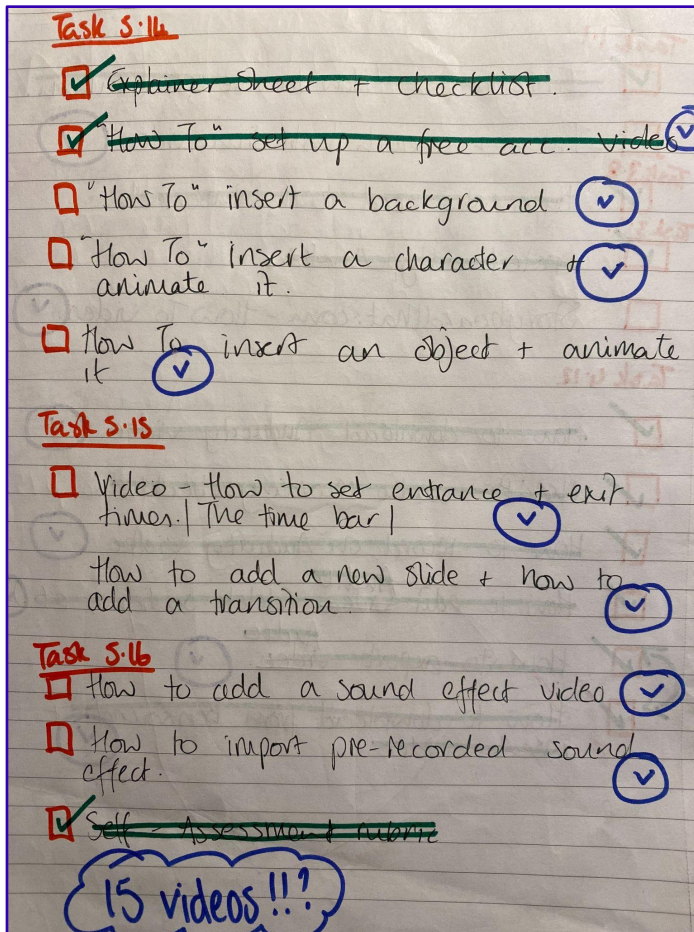 Task 5.14
Explainer Sheet + checklist.
"How To" set up a free acc. video
"How To" insert a background
"How To" insert a character +
animate it.
How To insert an object + animate
it
Task 5.15
Video - How to set entrance + exit
times. | The time bar |
How to add a new slide + how to
add a transition.
Task 5.16
How to add a sound effect video
How to import pre-recorded sound
effect.
Self-Assessment rubric
15 videos!!?